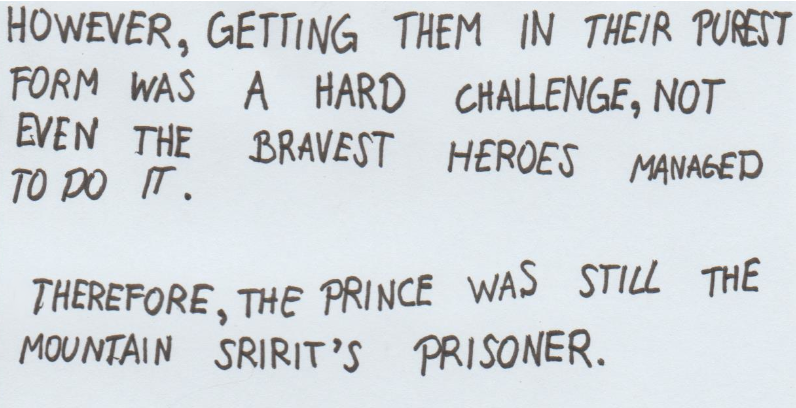 HOWEVER, GETTING THEM IN THEIR PUREST
FORM WAS A HARD CHALLENGE, NOT
EVEN THE BRAVEST HEROES MANAGED
TO DO IT.
THEREFORE, THE PRINCE WAS STILL THE
MOUNTAIN SRIRIT'S PRISONER.